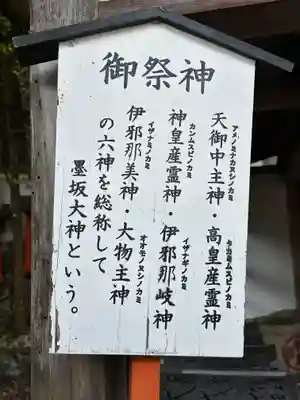 御祭神
天御中主神・高皇産霊神
アメノミナカヌシノカミ
タカミムスビノカミ
神皇産霊神・伊邪那岐神
カンムスビノカミ
イザナギノカミ
伊邪那美神・大物主神
イザナミノカミ
オオモノヌシノカミ
の六神を総称して
墨坂大神という。